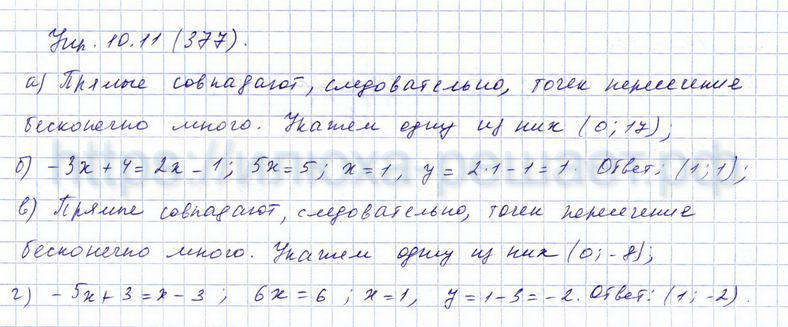 Упр. 10.11 (377).
а) Прямые совпадают, следовательно, точек пересечение
бесконечно много. Укажем одну из них (0; 17);
б) -3x + 4 = 2x - 1; 5x = 5; x = 1, y = 2·1 - 1 = 1. Ответ: (1; 1);
в) Прямые совпадают, следовательно, точек пересечение
бесконечно много. Укажем одну из них (0; -8);
г) -5x + 3 = x - 3; 6x = 6; x = 1, y = 1 - 3 = -2. Ответ: (1; -2).